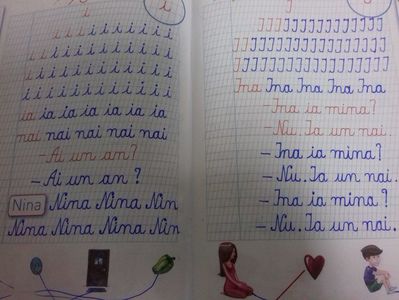 i
i i i i i i i i i
i i i i i i i i i i i
i i i i i i i i i i i
i i i i i i i i i i i
ia ia ia ia ia ia ia
nai nai nai nai nai
-Ai un an?
- Ai un an ?
Nina Nina Nina Nin
Nina Nina Nina Nin
I I I I I I I I I I I I I
I I I I I I I I I I I I I I I
I I I I I I I I I I I I I I I
Ina Ina Ina Ina Ina
-Ina ia mina?
-Nu. Ia un nai.
- Ina ia mina?
- Nu. Ia un nai.
- Ina ia mina ?
- Nu. Ia un nai.